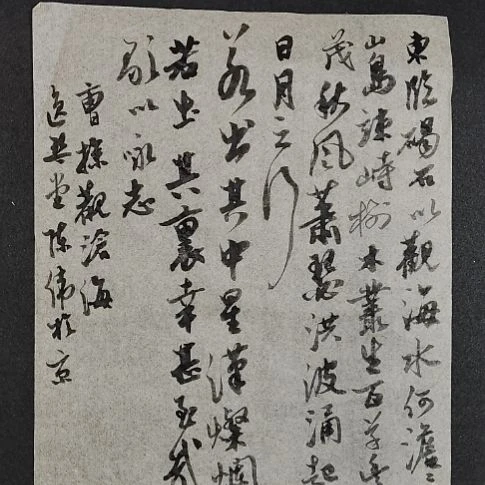 東臨碣石以觀海水何澹〻
山島竦峙樹木叢生百草豐
茂秋風蕭瑟洪波涌起
日月之行
若出其中星漢燦爛
若出其裏幸甚至哉
歌以咏志
曹操觀滄海
堂陳偉於京